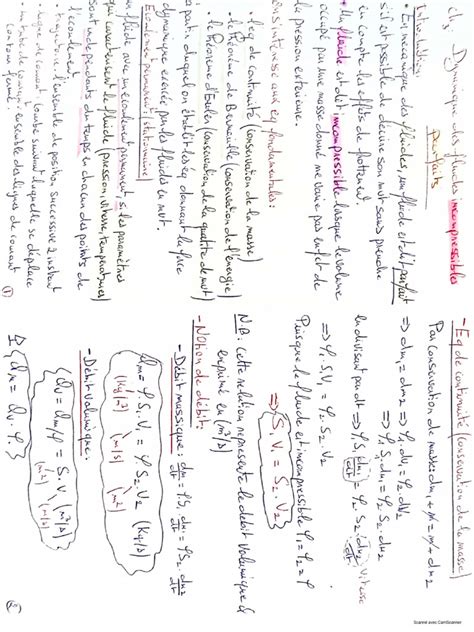 ch3 Dynamique des fluides incompressibles
parfaits
Introduction:
• En mécanique des fluides, un fluide est dit parfait
s'il est possible de décrire son mvt sans prendre
en compte les effets de frottement.
• Un fluide est dit incompressible lorsque le volume
occupé par une masse donné ne varie pas en fct de
la pression extérieure.
intéresse aux eq fondamentales:
• l'eq de continuité (conservation de la masse)
• le théorème de Bernoulli (conservation de l'énergie)
• le théorème d'Euler (conservation de la quantité de mvt)
à partir duquel on établit les eq donnant la force
dynamique exercée par les fluides en mvt.
Ecoulement permanent (stationnaire)
un fluide avec un écoulement permanent, si les paramètres
qui caractérisent le fluide (pression, vitesse, température)
sont indépendants du temps en chacun des points de
l'écoulement
• trajectoire: l'ensemble de position successive à instant
• ligne de courant: courbe suivant laquelle se déplace
• tube de courant: ensemble des lignes de courant
contour fermé.
①
- Eq de continuité (conservation de la masse)
Par conservation de masse: dm1 + M = M + dm2
⇒ dm1 = dm2 ⇒ ρ1.dV1 = ρ2.dV2
⇒ ρ1 S1.dx1 = ρ2 S2.dx2
En divisant par dt ⇒ ρ1 S1 dx1/dt = ρ2 S2 dx2/dt vitesse
⇒ ρ1.S1.V1 = ρ2.S2.V2
Puisque le fluide est incompressible ρ1 = ρ2 = ρ
⇒ S1.V1 = S2.V2
N.B: Cette relation représente le débit volumique &
exprimé en (m³/s)
- Notion de débit:
- Débit massique: dm/dt = ρS1 dx1/dt = ρS2 dx2/dt
Qm = ρ.S1.V1 = ρS2.V2 (kg/s)
(m/s)
- Débit volumique:
Qv = Qm/ρ = S.V (m³/s)
(m²) (m/s)
Qm = Qv.ρ
②
Scanné avec CamScanner